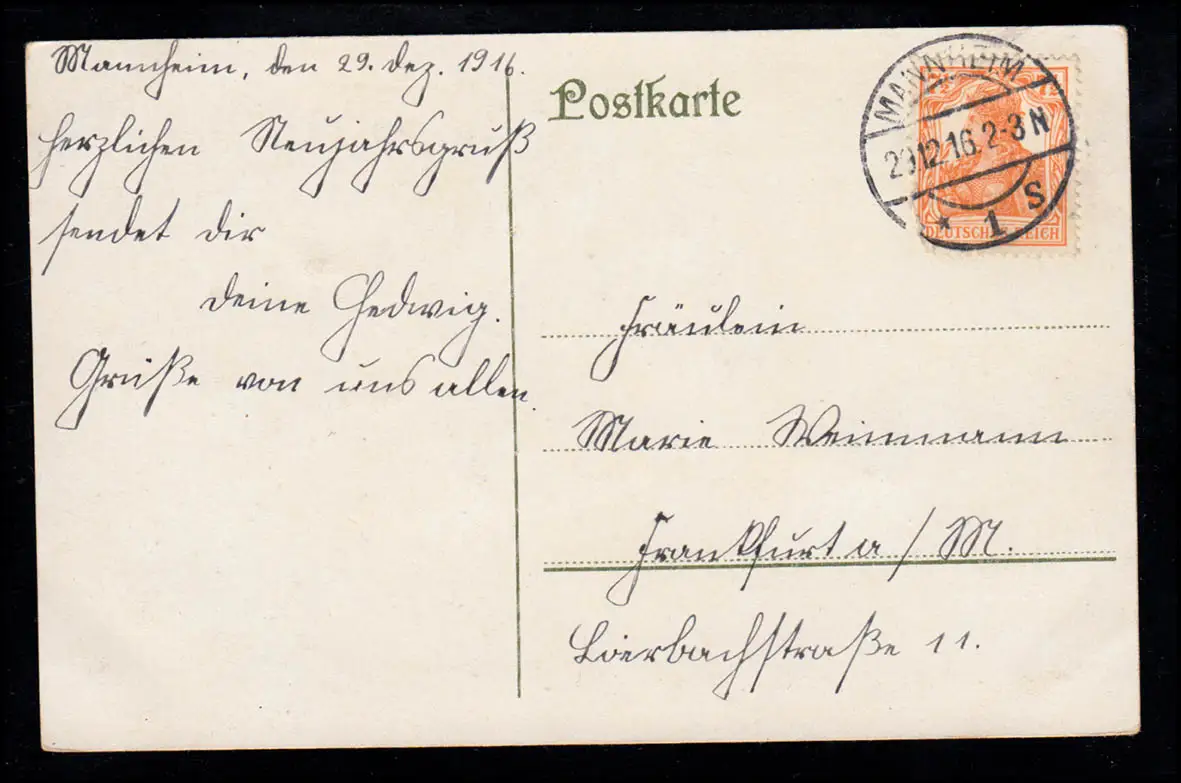 Mannheim, den 29. Dez. 1916.
Herzlichen Neujahrsgruß
sendet dir
deine Hedwig.
Grüße von uns allen.
Postkarte
MANNHEIM
29.12.16. 2-3 N
* 1 S
DEUTSCHES REICH
Fräulein
Marie Weinmann
Frankfurt a/M.
11.